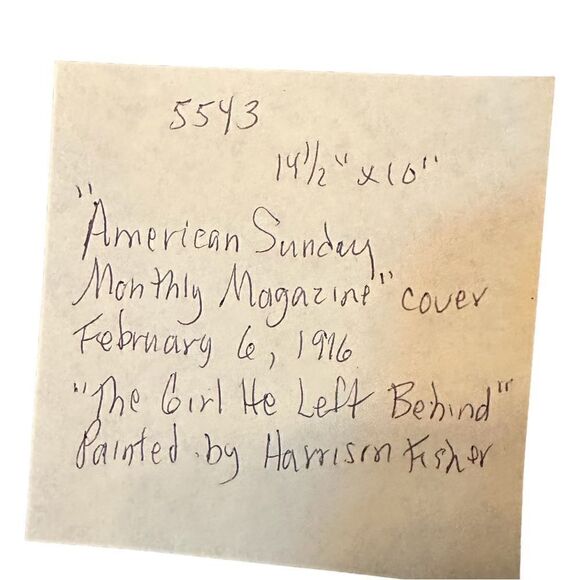 5543
14 1/2" x 10"
"American Sunday
Monthly Magazine" cover
February 6, 1916
"The Girl He Left Behind"
Painted by Harrison Fisher